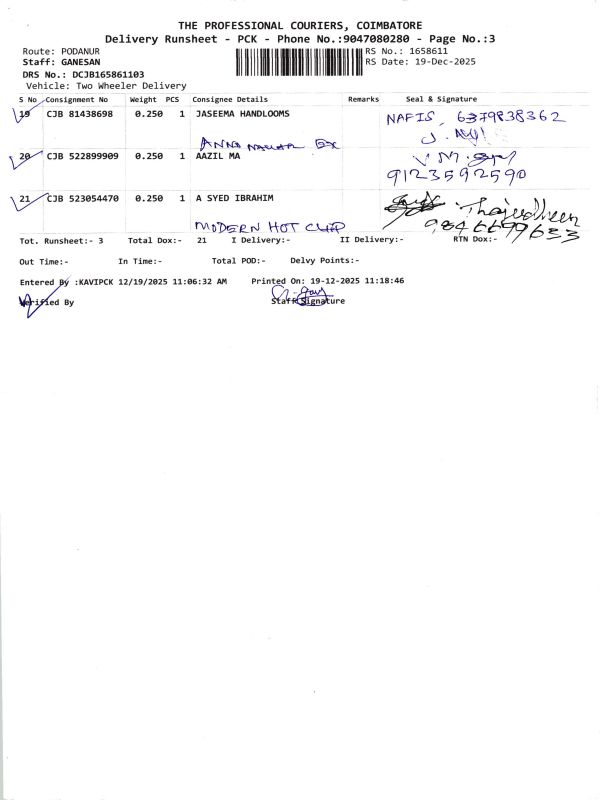 THE PROFESSIONAL COURIERS, COIMBATORE
Delivery Runsheet - PCK - Phone No.:9047080280 - Page No.:3
Route: PODANUR RS No.: 1658611
Staff: GANESAN RS Date: 19-Dec-2025
DRS No.: DCJB165861103
Vehicle: Two Wheeler Delivery
S No Consignment No Weight PCS Consignee Details Remarks Seal & Signature
19 CJB 81438698 0.250 1 JASEEMA HANDLOOMS NAFIS, 6379838362
ANNA NAGAR EX
20 CJB 522899909 0.250 1 AAZIL MA
9123592590
21 CJB 523054470 0.250 1 A SYED IBRAHIM Thajudheen
MODERN HOT CHIP 9846699633
Tot. Runsheet:- 3 Total Dox:- 21 I Delivery:- II Delivery:- RTN Dox:-
Out Time:- In Time:- Total POD:- Delvy Points:-
Entered By :KAVIPCK 12/19/2025 11:06:32 AM Printed On: 19-12-2025 11:18:46
Verified By Staff Signature